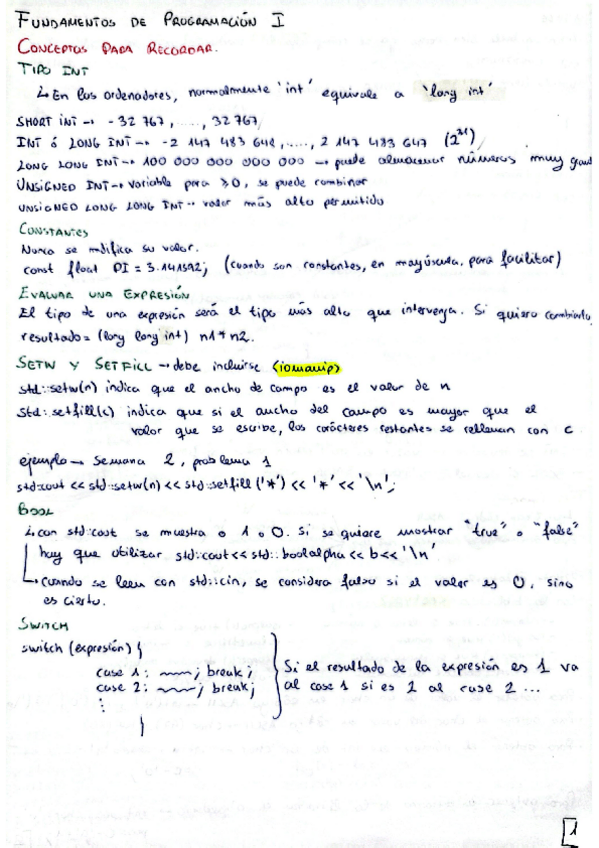 FUNDAMENTOS DE PROGRAMACIÓN I
CONCEPTOS PARA RECORDAR.
TIPO INT
↳ En los ordenadores, normalmente 'int' equivale a 'long int'
SHORT INT → -32 767, ....., 32 767
INT ó LONG INT → -2 147 483 648, ....., 2 147 483 647 (2³¹)
LONG LONG INT → 100 000 000 000 000 → puede almacenar números muy grand
UNSIGNED INT → variable para ≥0, se puede combinar
UNSIGNED LONG LONG INT → valor más alto permitido
CONSTANTES
Nunca se modifica su valor.
const float PI = 3.141592; (cuando son constantes, en mayúscula, para facilitar)
EVALUAR UNA EXPRESIÓN
El tipo de una expresión será el tipo más alto que intervenga. Si quiero cambiarlo,
resultado = (long long int) n1 * n2.
SETW Y SETFILL → debe incluirse <iomanip>
std::setw(n) indica que el ancho de campo es el valor de n
std::setfill(c) indica que si el ancho del campo es mayor que el
valor que se escribe, los carácteres restantes se rellenan con c
ejemplo → Semana 2, problema 1
std::cout << std::setw(n) << std::setfill('*') << '*' << '\n';
BOOL
↳ con std::cout se muestra o 1 o 0. Si se quiere mostrar "true" o "false"
hay que utilizar std::cout << std::boolalpha << b << '\n'
↳ Cuando se leen con std::cin, se considera falso si el valor es 0, sino
es cierto.
SWITCH
switch (expresión) {
case 1: ; break;
case 2: ; break;
⋮
}
Si el resultado de la expresión es 1 va
al case 1 si es 2 al case 2 ...
1